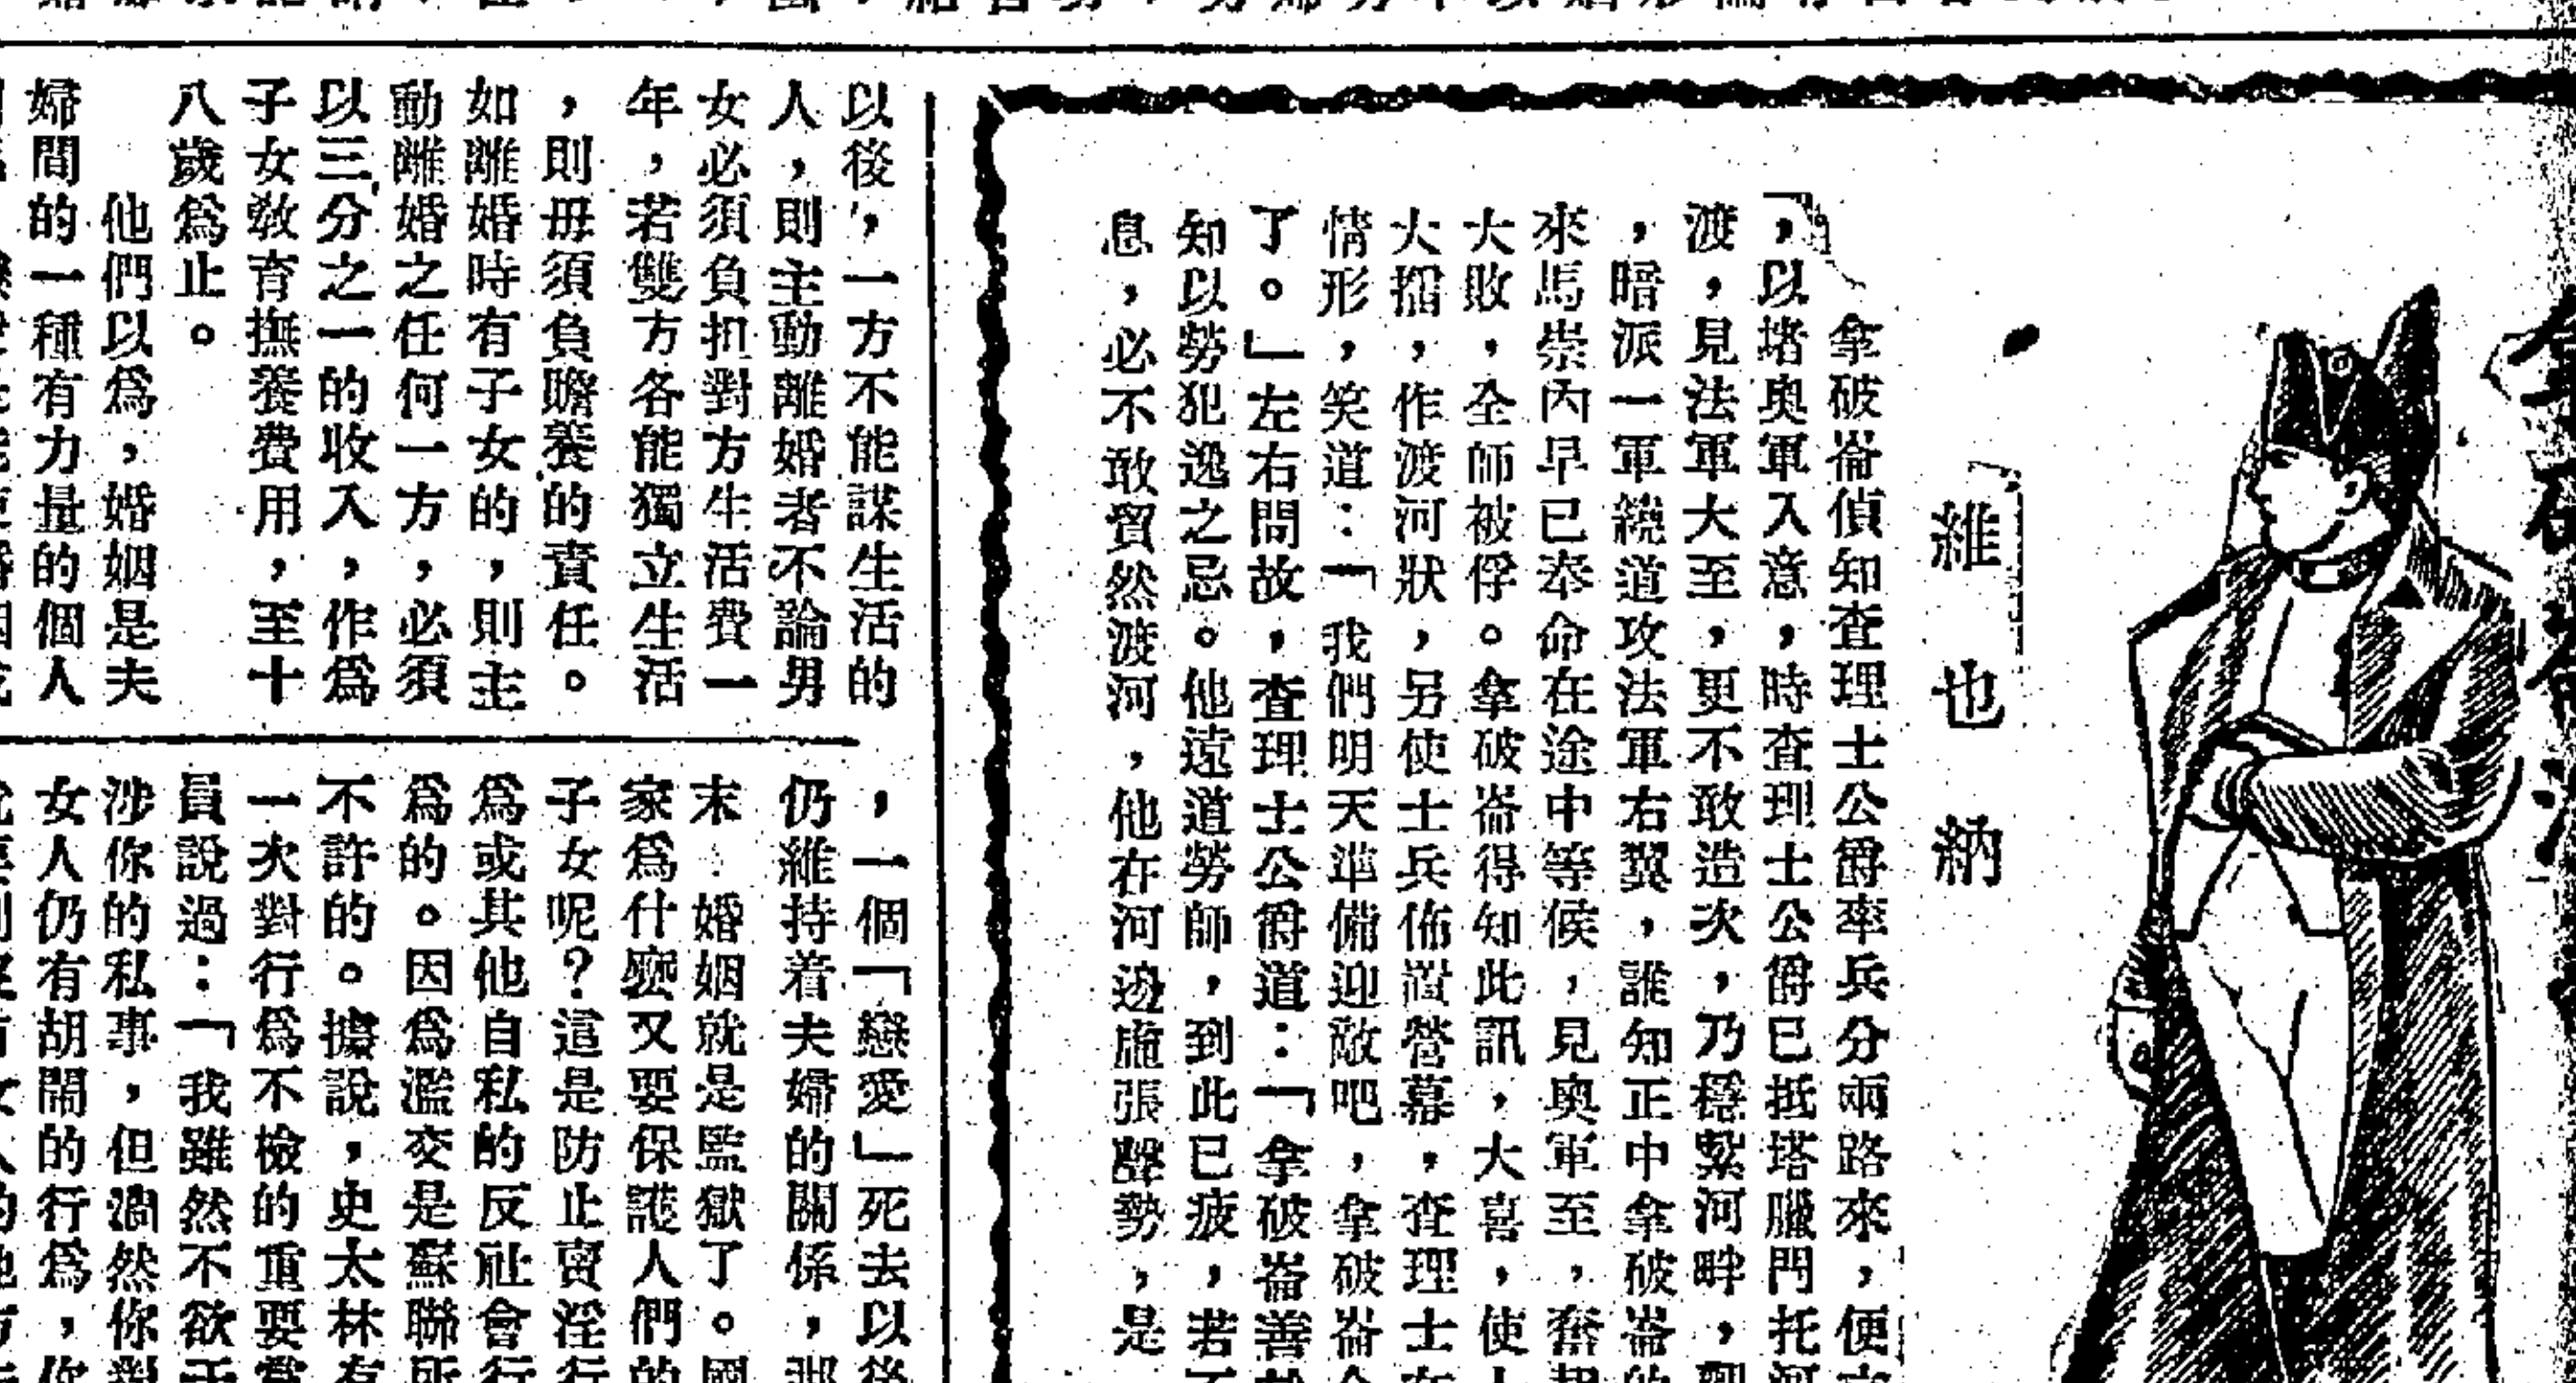 維也納
拿破崙偵知查理士公爵率兵分兩路來，便
，以堵奧軍入意，時查理士公爵已抵塔臘門托河
渡，見法軍大至，更不敢造次，乃穩紮河畔，
，暗派一軍繞道攻法軍右翼，誰知正中拿破崙的
來馬崇內早已奉命在途中等候，見奧軍至，奮起
大敗，全師被俘。拿破崙得知此訊，大喜，使
大擂，作渡河狀，另使士兵佈置營幕，查理士
情形，笑道：「我們明天準備迎敵吧，拿破崙
了。」左右問故，查理士公爵道：「拿破崙善
知以勞犯逸之忌。他遠道勞師，到此已疲，若不
息，必不敢貿然渡河，他在河邊虛張聲勢，是
以後，一方不能謀生活的
人，則主動離婚者不論男
女必須負担對方生活費一
年，若雙方各能獨立生活
，則毋須負贍養的責任。
如離婚時有子女的，則主
動離婚之任何一方，必須
以三分之一的收入，作爲
子女教育撫養費用，至十
八歲爲止。
他們以爲，婚姻是夫
婦間的一種有力量的個人
，一個「戀愛」死去以後
仍維持着夫婦的關係，那
末 婚姻就是監獄了。國
家爲什麼又要保護人們的
子女呢？這是防止賣淫行
爲或其他自私的反社會行
爲的。因爲濫交是蘇聯所
不許的。據說，史太林有
一次對行爲不檢的重要黨
員說過：「我雖然不欲干
涉你的私事，但倘然你對
女人仍有胡鬧的行爲，你